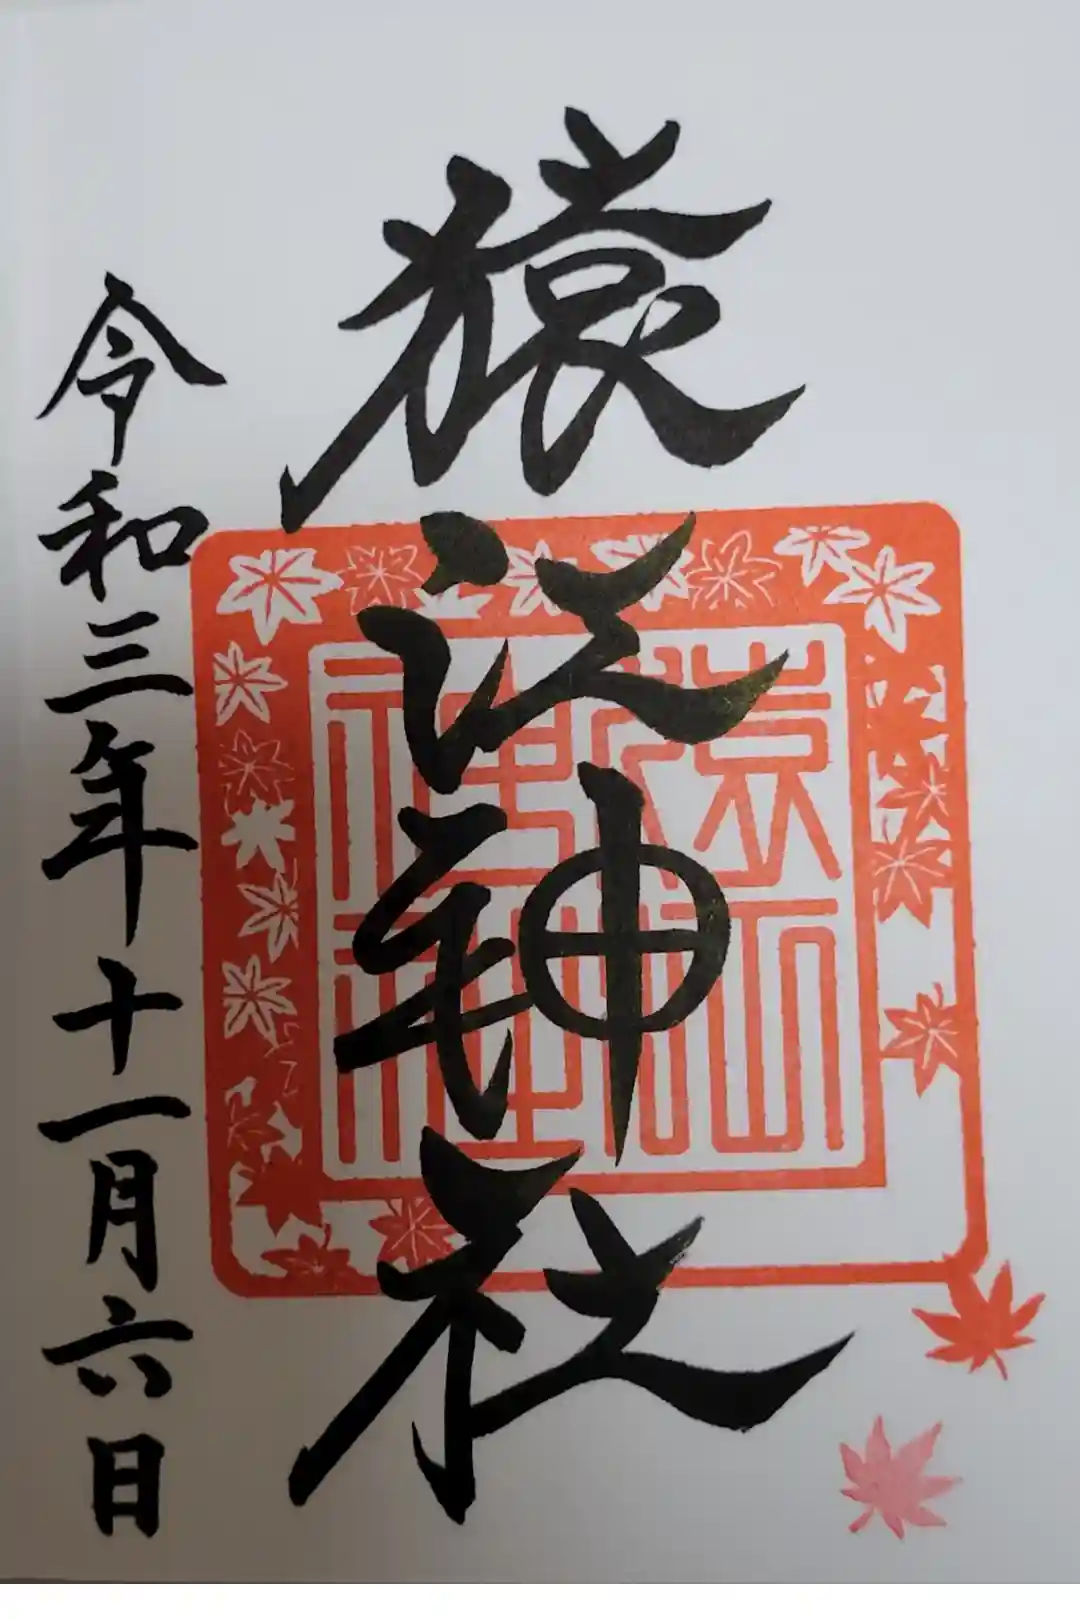 猿江神社
猿江
神社
令和三年十一月六日